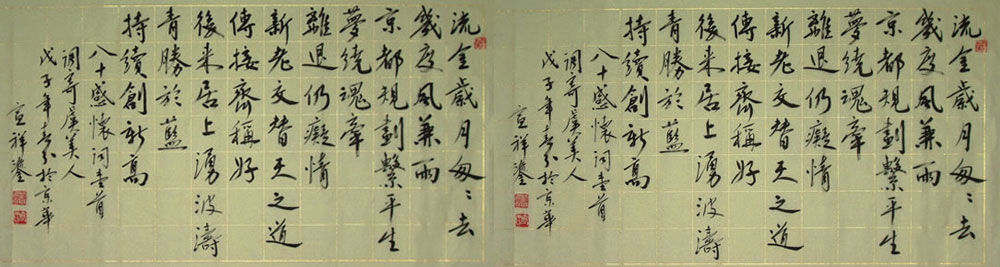 流金歲月匆々去
幾度風兼雨
京都規劃繫平生
夢繞魂牽
離退仍癡情
新老交替天之道
傳接齊稱好
後来居上湧波濤
青勝於藍
持續創新高
八十感懷詞壹首
調寄虞美人
戊子年春分於京華
宣祥鎏
流金歲月匆々去
幾度風兼雨
京都規劃繫平生
夢繞魂牽
離退仍癡情
新老交替天之道
傳接齊稱好
後来居上湧波濤
青勝於藍
持續創新高
八十感懷詞壹首
調寄虞美人
戊子年春分於京華
宣祥鎏